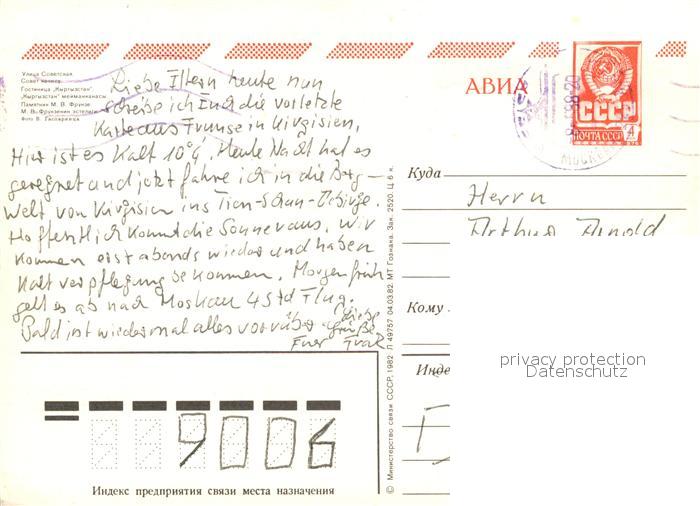 Улица Советская
Совет көчөсү
Гостиница „Кыргызстан"
„Кыргызстан" мейманканасы
Памятник М. В. Фрунзе
М. В. Фрунзенин эстелиги
Фото В. Гаспарянца
АВИА
СССР
ПОЧТА СССР
4
МОСКВА
Liebe Eltern heute nun
schreibe ich Euch die vorletzte
Karte aus Frunse in Kirgisien,
Hier ist es Kalt 10°, Heute Nacht hat es
geregnet und jetzt fahre ich in die Berg-
Welt von Kirgisien ins Tien-Schan-Gebirge.
Hoffentlich kommt die Sonne raus. Wir
kommen erst abends wieder und haben
Kaltverpflegung bekommen. Morgen früh
geht es ab nach Moskau 4 Std Flug.
Bald ist wiedermal alles vorüber. Liebe
Grüße
Euer
Куда
Herrn
Arthur Arnold
Кому
Инде
privacy protection
Datenschutz
9006
Индекс предприятия связи места назначения
© Министерство связи СССР, 1982 Л 49757 04.03.82. МТ Гознака. Зак. 2520. Ц. 6 к.